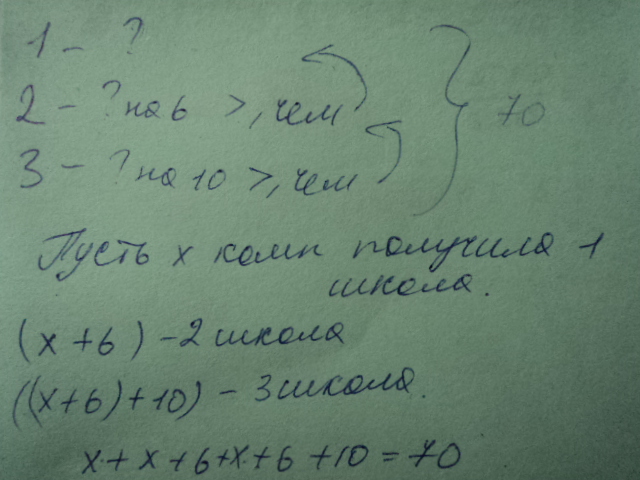 1 - ?
2 - ? на 6 >, чем
70
3 - ? на 10 >, чем
Пусть х комп получила 1
школа.
(х + 6) - 2 школа
((х+6)+10) - 3 школа.
х + х + 6 + х + 6 + 10 = 70